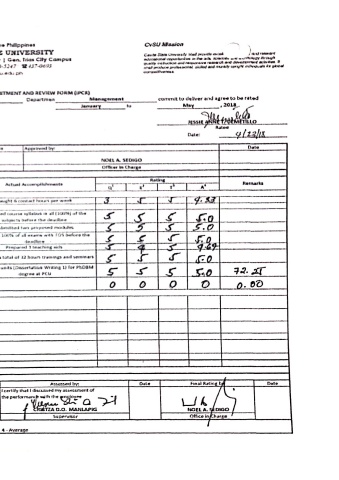 e Philippines
E UNIVERSITY
Gen. Trias City Campus
CvSU Mission
Cavite State University shall provide
and relevant
educational opportunities in the arts, sciences and technology through
quality instruction and responsive research and development activities. It
shall produce professional, skilled and morally upright individuals for global
competitiveness.
TMENT AND REVIEW FORM (IPCR)
Department Management commit to deliver and agree to be rated
January to May , 2018
Ratee
Date: 4/22/18
Approved by: Date
NOEL A. SEDIGO
Officer in Charge
Actual Accomplishments Rating Remarks
Q¹ E² T³ A⁴
aught 6 contact hours per week 3 5 5 4.33
ed course syllabus in all (100%) of the
subjects before the deadline 5 5 5 5.0
ubmitted two proposed modules 5 5 5 5.0
100% of all exams with TOS before the
deadline 5 5 5 5.0
Prepared 3 teaching aids 5 4 5
a total of 32 hours trainings and seminars 5 5 5 5.0
units (Dissertation Writing 1) for PhDBM
degree at PCU 5 5 5 5.0 72.25
0 0 0 0 0.00
Assessed by: Date Final Rating by Date
I certify that I discussed my assessment of
the performance with the employee
CHATZA D.O. MANLAPIG NOEL A. SEDIGO
Supervisor Office in Charge
4 - Average